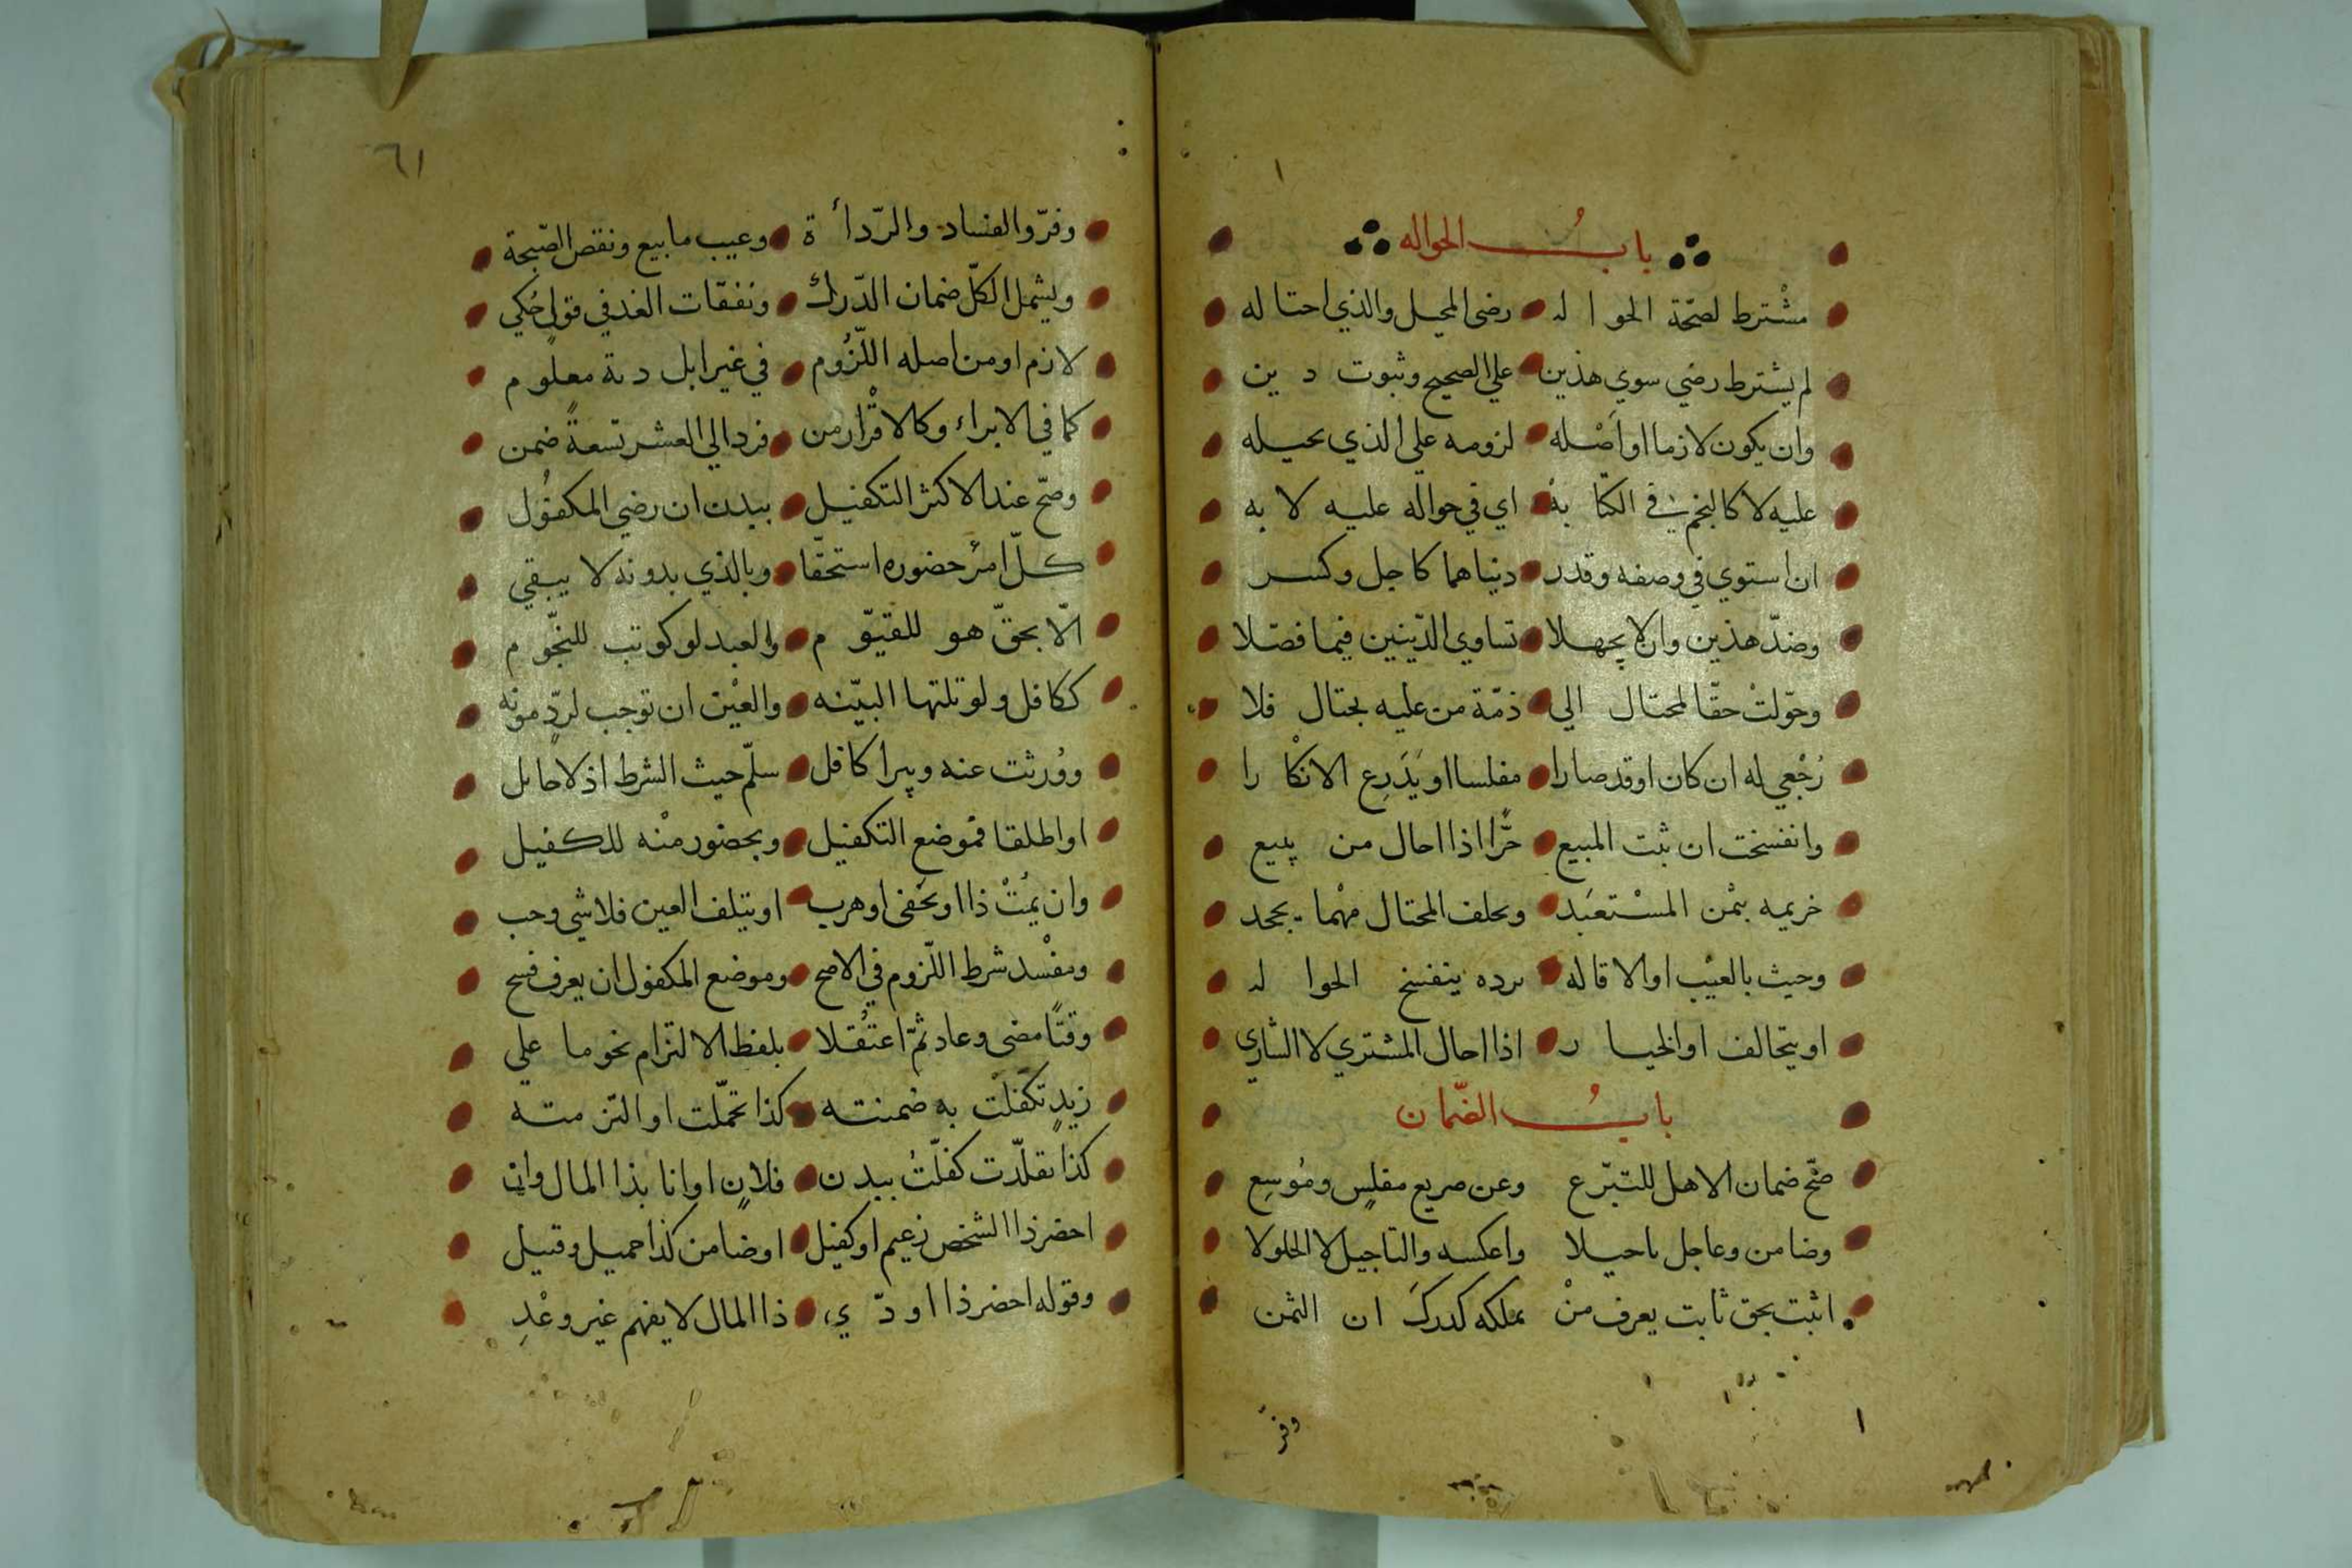 باب الحواله
مشترط لصحّة الحوا له رضى المحيل والذي احتا له
لم يشترط رضي سوي هذين علي الصحيح وثبوت د ين
وان يكون لازما او اصله لزومه علي الذي يحيله
عليه لا كالنجم في الكتا بة اي في حواله عليه لا به
ان استوي في وصفه وقدر ديناهما كاجل وكسر
وضدّ هذين وان لا يجهلا تساوي الدّينين فيما فصّلا
وحوّلت حقّا لمحتال الي ذمّة من عليه يحتال فلا
رُجْعي له ان كان او قد صارا مفلسا او يَدَرِع الانكا را
وانفسخت ان ثبت المبيع حرًّا اذا احال من يبيع
غريمه بثمن المسْتعبَد ويحلف المحتال مهْما يجحد
وحيث بالعيْب او الاقاله برده ينفسخ الحوا له
او يتحالف او الخيا ر اذا احال المشتري لا الشاري
بابُ الضّمان
صّح ضمان الاهل للتبّرع وعن صريع مفلسٍ ومُوسِع
وضامن وعاجل تاجيلا واعكسه والتاجيل لا الحلولا
اثبت بحق ثابت يعرف منْ يملكه كدركَ ان الثمن
وفر
٦١
وفرّوا لفساد والرّدأ ة وعيب ما بيع ونقص الصّبجة
ويشمل الكلّ ضمان الدّرك ونفقات الغد في قولٍ حُكي
لازم او من اصله اللّزُوم في غير ابل دية معلو م
كما في الابراء وكالاقْرار من فرد الي العشر تسعةً ضمن
وصّح عند الاكثر التكفيل ببدن ان رضي المكفُول
كلّ امرُ حضوره استحقّا وبالذي بدونه لا يبقي
الّا بحقّ هو للقيّو م والعبد لو كوتب للنجّو م
ككافل ولو تلتها البيّنه والعيْن ان توجب لردٍّ مونه
ووُرثت عنه ويبرا كافل سلّم حيث الشرط اذ لا حايل
او اطلقا فموضع التكفيل وبحضور منْه للكفيل
وان يمُتْ ذا او يخْفى او هرب او يتلف العين فلا شي وجب
ومفْسد شرط اللّزوم في الاصح وموضع المكفول ان يعرف فسح
وقتًا مضى وعاد ثمّ اعتُقلا بلفظ الالتزام نحو ما علي
زيدٍ تكفّلتْ به ضمنته كذا تحمّلت او التز مته
كذا تقلّدت كفلّتُ ببدن فلانٍ او انا بذا المال وان
احضر ذا الشخص زعيم او كفيل او ضامن كذا حميل وقبيل
وقوله احضر ذا او دّ ي ذا المال لا يفهم غير وعْدِ